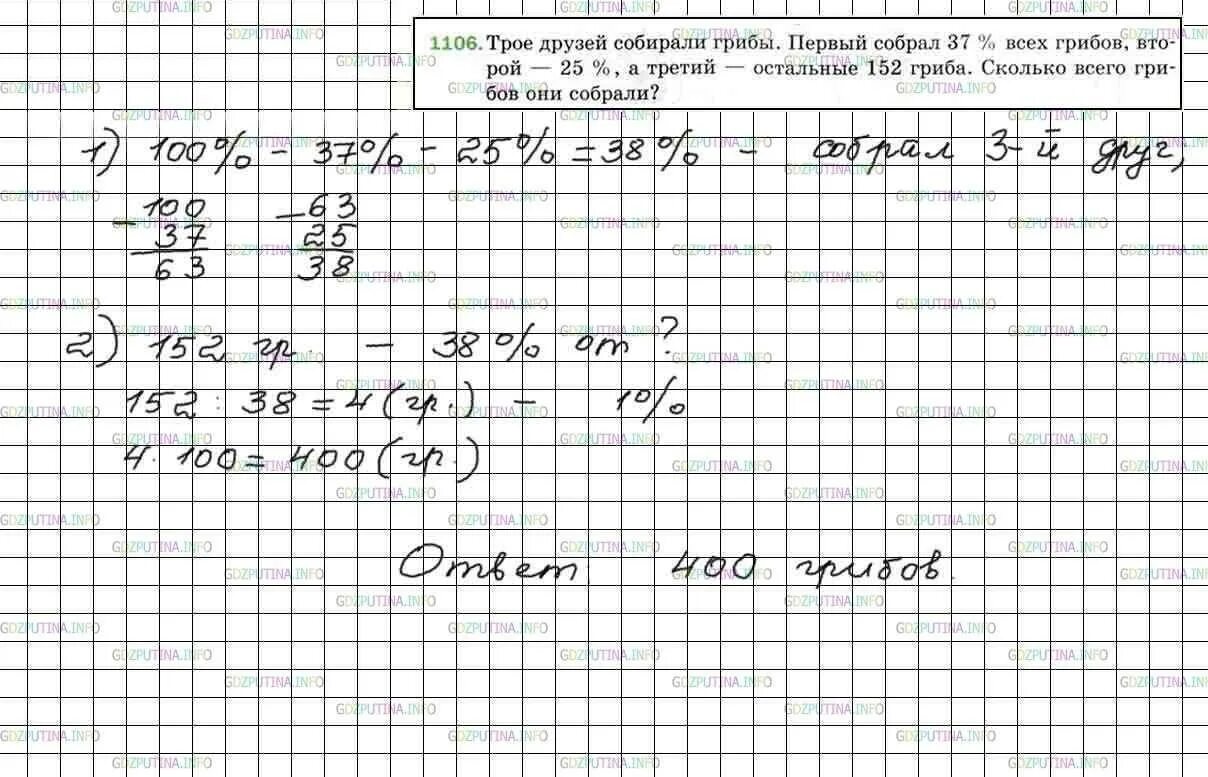 1106. Трое друзей собирали грибы. Первый собрал 37 % всех грибов, вто-
рой — 25 %, а третий — остальные 152 гриба. Сколько всего гри-
бов они собрали?
1) 100% - 37% - 25% = 38% - собрал 3-й друг,
- 100 - 63
37 25
63 38
2) 152 гр. - 38% от ?
152 : 38 = 4 (гр.) - 1%
4 · 100 = 400 (гр.)
Ответ: 400 грибов.
GDZPUTINA.INFO